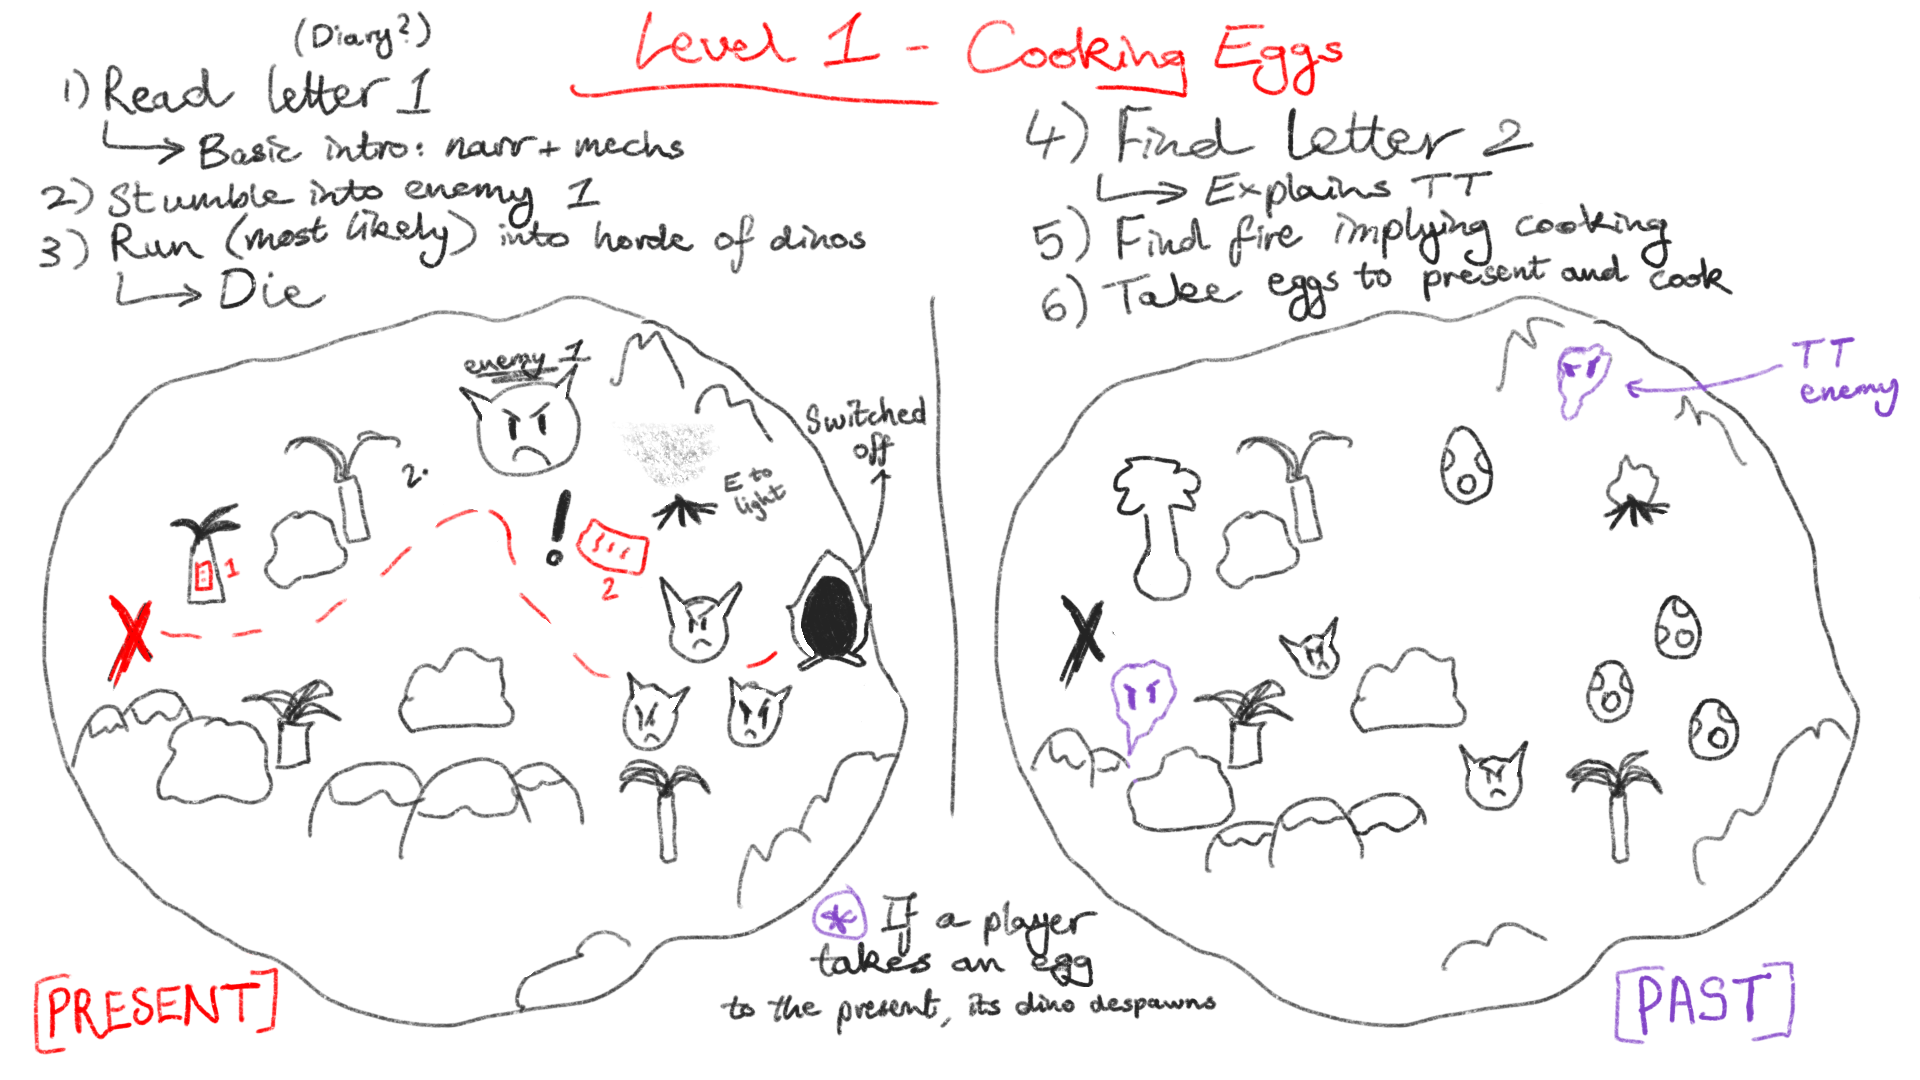 Level 1 - Cooking Eggs
(Diary?)
1) Read letter 1
Basic intro: narr + mechs
2) Stumble into enemy 1
3) Run (most likely) into horde of dinos
Die
4) Find letter 2
Explains TT
5) Find fire implying cooking
6) Take eggs to present and cook
enemy 1
Switched
off
2.
E to
light
!
1
2
X
TT
enemy
X
* If a player
takes an egg
to the present, its dino despawns
[PRESENT]
[PAST]